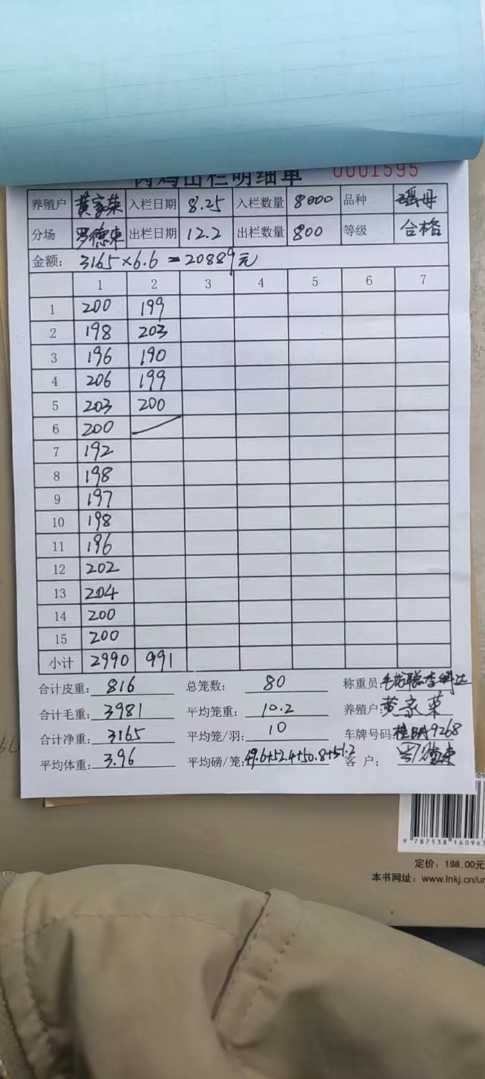 肉鸡出栏明细单 0001595
养殖户 黄家荣 入栏日期 8.25 入栏数量 8000 品种 瑶母
分场 罗德束 出栏日期 12.2 出栏数量 800 等级 合格
金额： 3165×6.6=20889元
1 2 3 4 5 6 7
1 200 199
2 198 203
3 196 190
4 206 199
5 203 200
6 200
7 192
8 198
9 197
10 198
11 196
12 202
13 204
14 200
15 200
小计 2990 991
合计皮重： 816 总笼数： 80 称重员：
合计毛重： 3981 平均笼重： 10.2 养殖户： 黄家荣
合计净重： 3165 平均笼/羽： 10 车牌号码： 9268
平均体重： 3.96 平均磅/笼： 49.6+52.4+50.8+51.2 客 户：
9 787538 16096
定价：198.00元
本书网址：www.lnkj.cn/ur